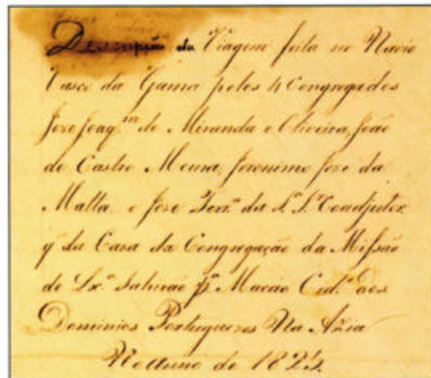 Descripção da Viagem feita no Navio
Vasco da Gama pelos 4 Congregados
Joze Joaq.m de Miranda e Oliveira, João
de Castro Moura, Jeronimo Joze da
Matta, e Joze da Coadjutor,
q da Casa da Congregação da Missão
de Lx.a Sahirão p.a Macão Cid.e aos
Dominios Portuguezes Na Azia
de 1825.